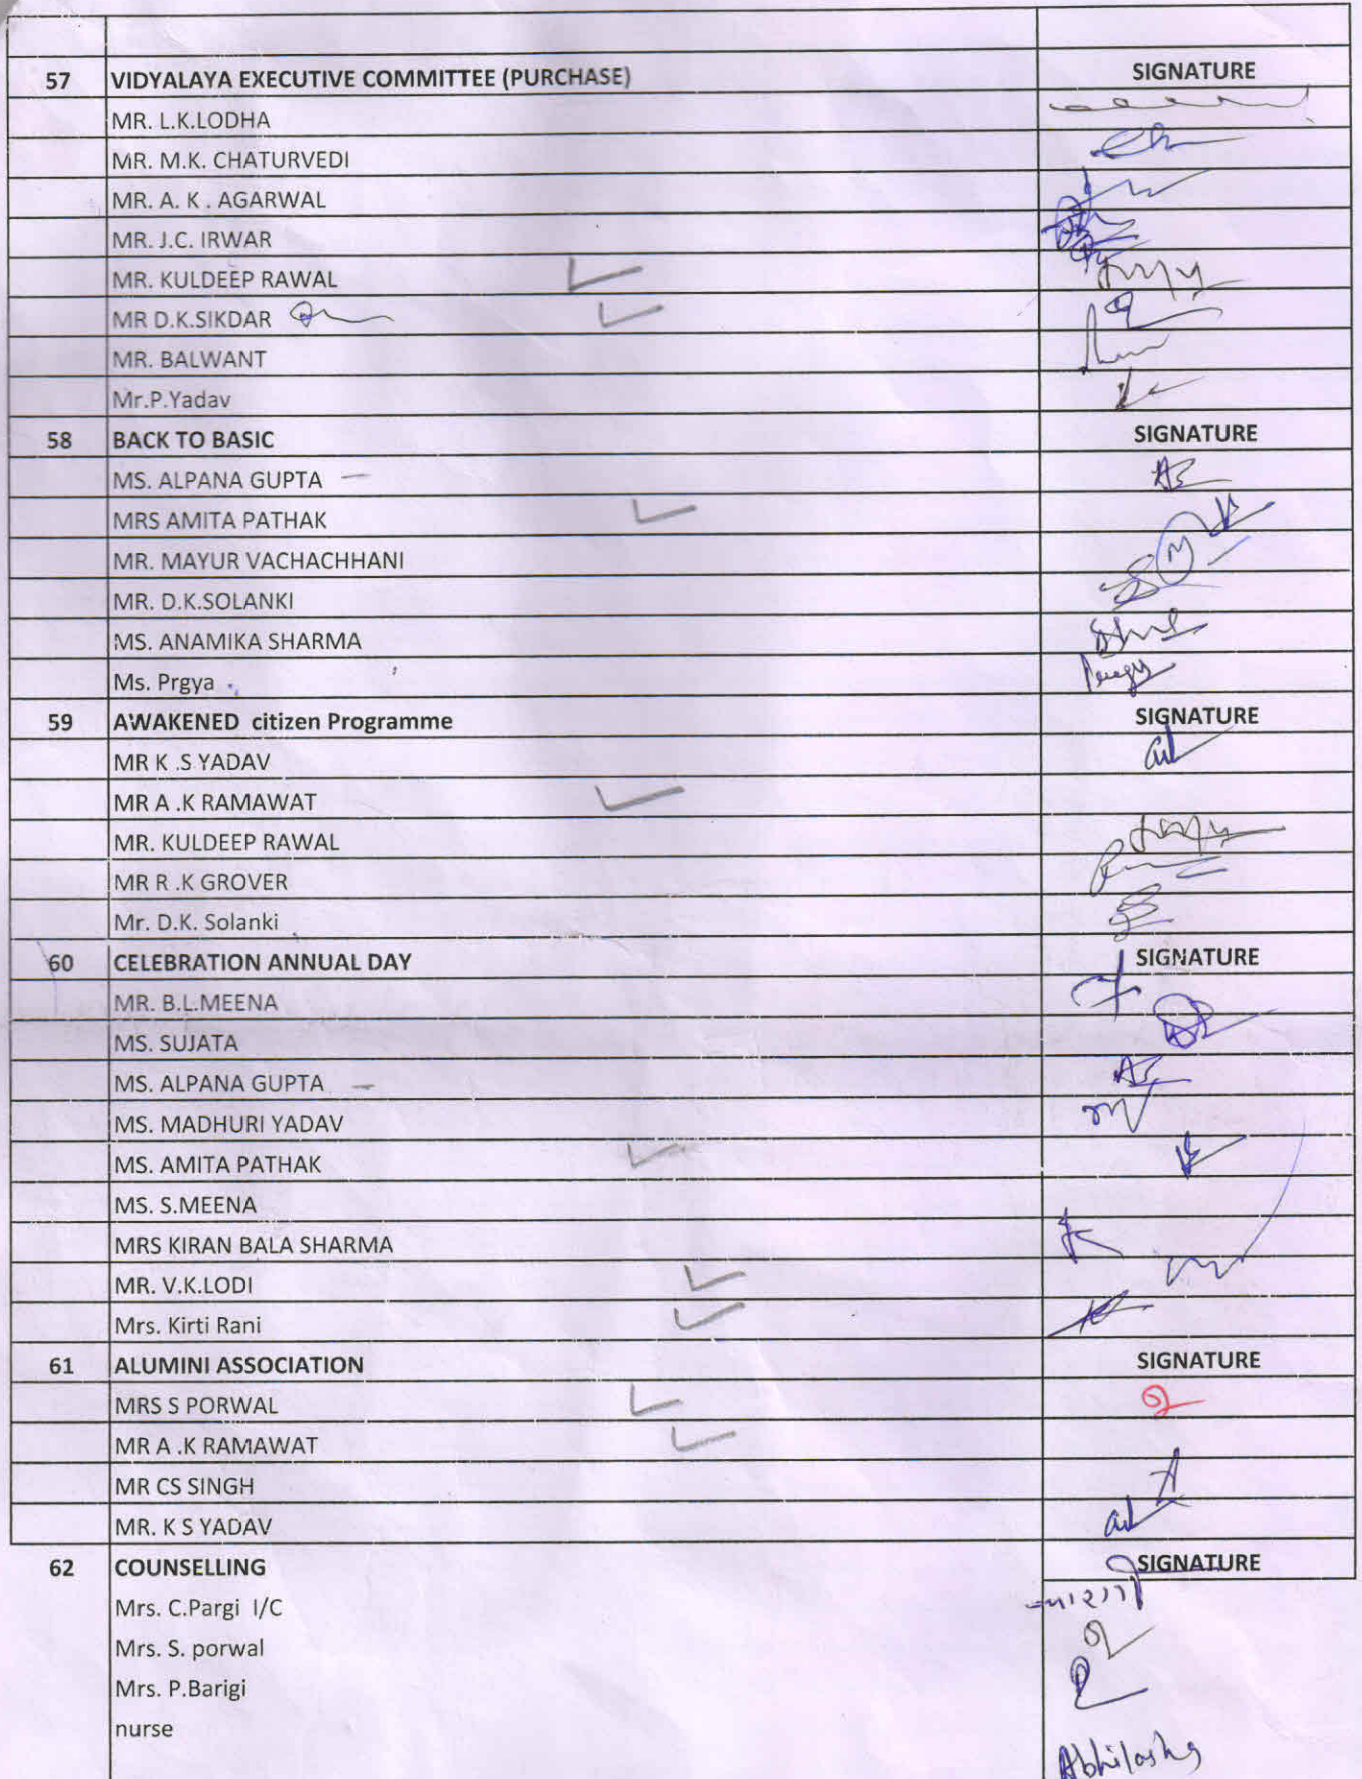 57 VIDYALAYA EXECUTIVE COMMITTEE (PURCHASE) SIGNATURE
MR. L.K.LODHA
MR. M.K. CHATURVEDI
MR. A. K . AGARWAL
MR. J.C. IRWAR
MR. KULDEEP RAWAL
MR D.K.SIKDAR
MR. BALWANT
Mr.P.Yadav
58 BACK TO BASIC SIGNATURE
MS. ALPANA GUPTA
MRS AMITA PATHAK
MR. MAYUR VACHACHHANI
MR. D.K.SOLANKI
MS. ANAMIKA SHARMA
Ms. Prgya
59 AWAKENED citizen Programme SIGNATURE
MR K .S YADAV
MR A .K RAMAWAT
MR. KULDEEP RAWAL
MR R .K GROVER
Mr. D.K. Solanki
60 CELEBRATION ANNUAL DAY SIGNATURE
MR. B.L.MEENA
MS. SUJATA
MS. ALPANA GUPTA
MS. MADHURI YADAV
MS. AMITA PATHAK
MS. S.MEENA
MRS KIRAN BALA SHARMA
MR. V.K.LODI
Mrs. Kirti Rani
61 ALUMINI ASSOCIATION SIGNATURE
MRS S PORWAL
MR A .K RAMAWAT
MR CS SINGH
MR. K S YADAV
62 COUNSELLING SIGNATURE
Mrs. C.Pargi I/C
Mrs. S. porwal
Mrs. P.Barigi
nurse
Abhilasha